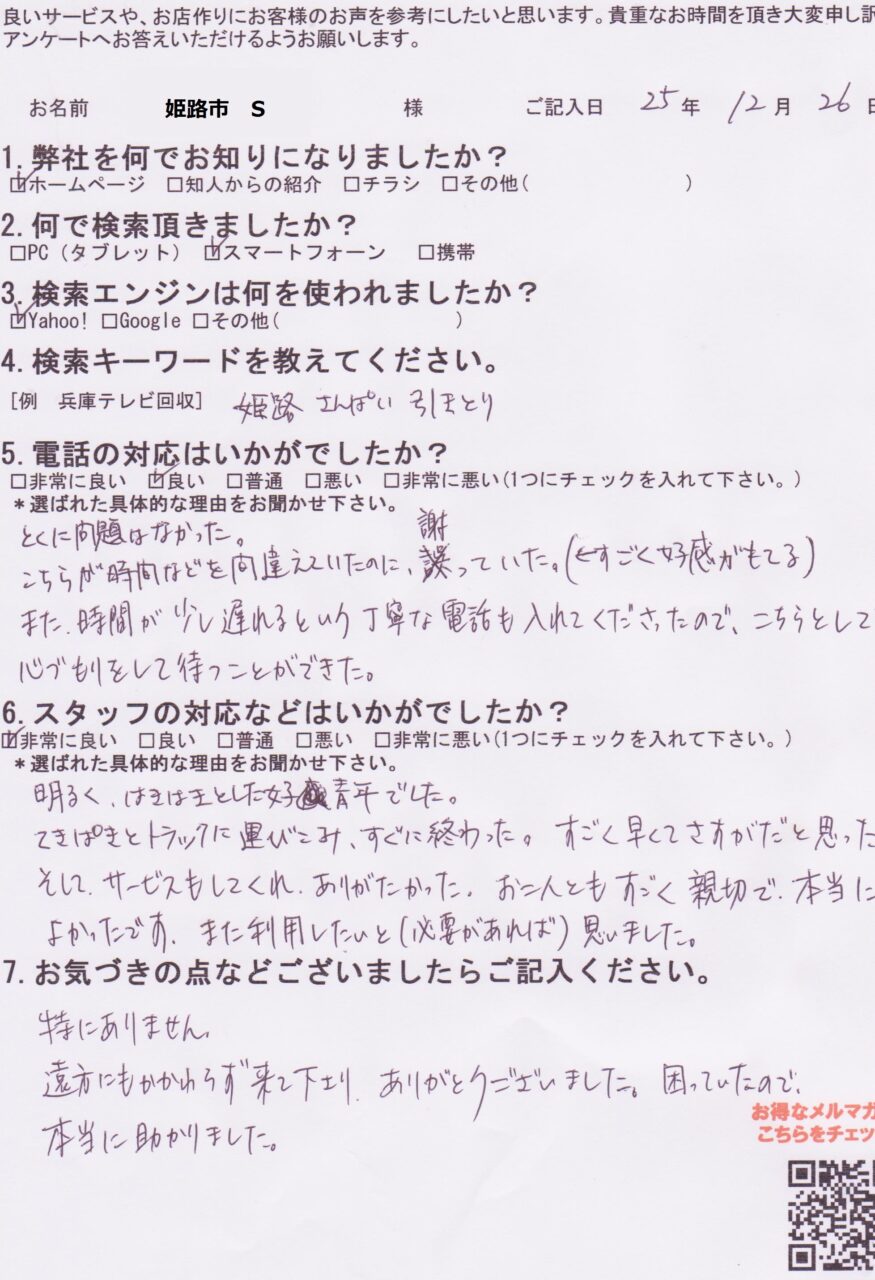 良いサービスや、お店作りにお客様のお声を参考にしたいと思います。貴重なお時間を頂き大変申し訳
アンケートへお答えいただけるようお願いします。
お名前 姫路市 S 様 ご記入日 25年 12月 26日
1.弊社を何でお知りになりましたか？
☑ホームページ □知人からの紹介 □チラシ □その他( )
2.何で検索頂きましたか？
□PC（タブレット） ☑スマートフォーン □携帯
3.検索エンジンは何を使われましたか？
☑Yahoo! □Google □その他( )
4.検索キーワードを教えてください。
[例 兵庫テレビ回収] 姫路 さんぱい 引きとり
5.電話の対応はいかがでしたか？
□非常に良い ☑良い □普通 □悪い □非常に悪い(1つにチェックを入れて下さい。)
＊選ばれた具体的な理由をお聞かせ下さい。
とくに問題はなかった。
こちらが時間などを間違えていたのに、謝っていた。(←すごく好感がもてる)
また、時間が少し遅れるという丁寧な電話も入れてくださったので、こちらとして
心づもりをして待つことができた。
6.スタッフの対応などはいかがでしたか？
☑非常に良い □良い □普通 □悪い □非常に悪い(1つにチェックを入れて下さい。)
＊選ばれた具体的な理由をお聞かせ下さい。
明るく、はきはきとした好青年でした。
てきぱきとトラックに運びこみ、すぐに終わった。すごく早くてさすがだと思った
そして、サービスもしてくれ、ありがたかった。お二人ともすごく親切で、本当に
よかったです。また利用したいと(必要があれば)思いました。
7.お気づきの点などございましたらご記入ください。
特にありません。
遠方にもかかわらず来て下さり、ありがとうございました。困っていたので、
本当に助かりました。
お得なメルマガ
こちらをチェッ